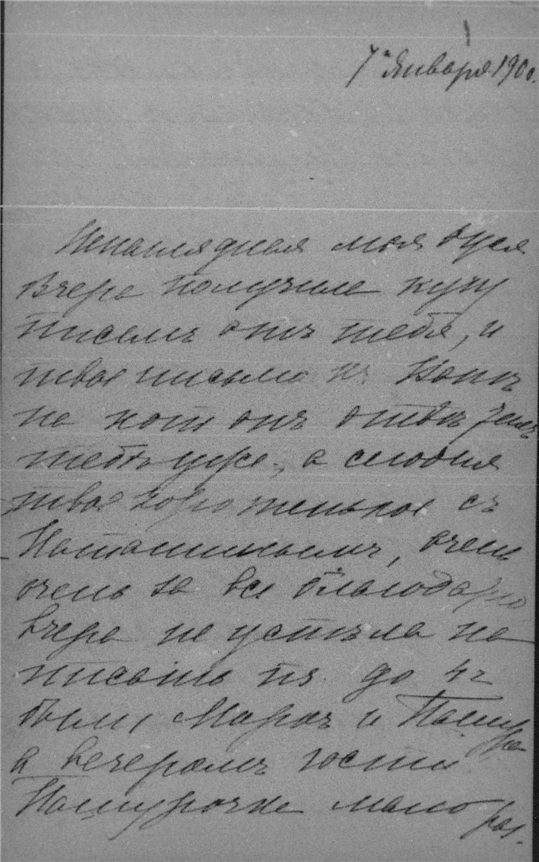 7го Января 1900.
Ненаглядная моя Дуся
Вчера получила кучу
писемъ отъ тебя, и
твое письмо къ
на кот онъ
тебѣ уже, а сегодня
твое хорошенькое съ
Наташинымъ, очень
очень за все благодарю
вчера не успѣла на
писать т.к. до 4х
были Мара и Пашура
а вечеромъ гости
Пашурочка мало раз.